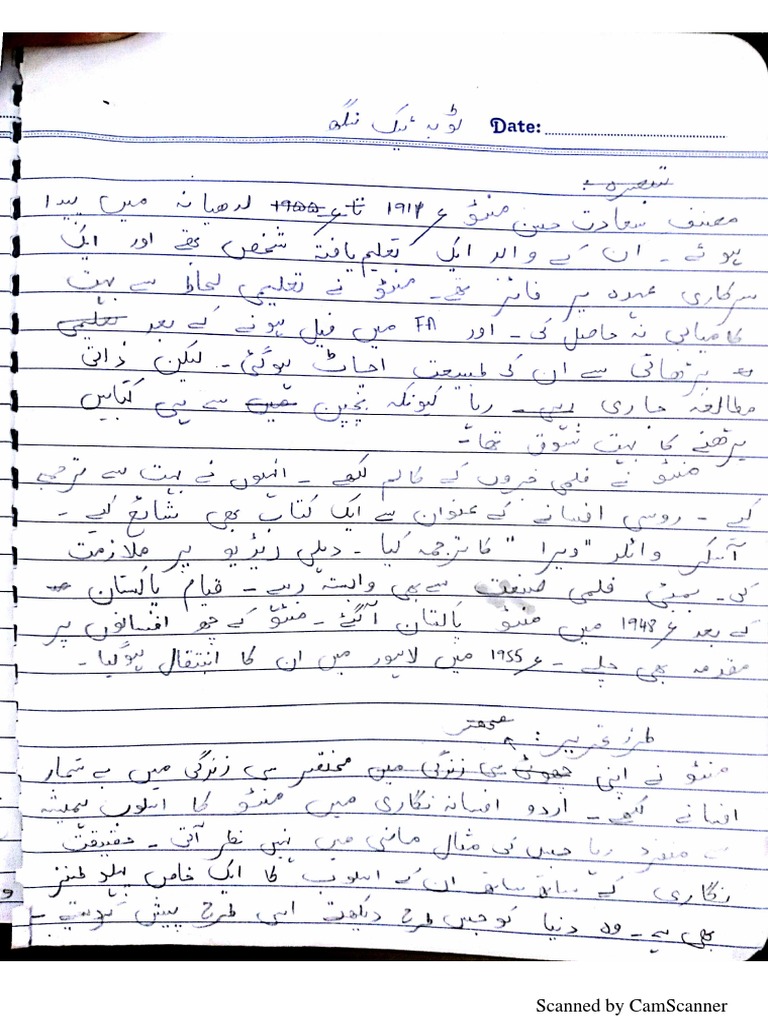 ٹوبہ ٹیک سنگھ Date:
تبصرہ :
مصنف سعادت حسن منٹو 1914ء تا 1955ء لدھیانہ میں پیدا
ہوئے ۔ ان کے والد ایک تعلیم یافتہ شخص تھے اور ایک
سرکاری عہدہ پر فائز تھے۔ منٹو نے تعلیمی لحاظ سے بہت
کامیابی نہ حاصل کی ۔ اور FA میں فیل ہونے کے بعد تعلیمی
پڑھائی سے ان کی طبیعت اچاٹ ہوگئی ۔ لیکن ذاتی
مطالعہ جاری رہی۔ رہا کیونکہ بچپن میں سے ہی کتابیں
پڑھنے کا بہت شوق تھا۔
منٹو نے فلمی خبروں کے کالم لکھے ۔ انہوں نے بہت سے ترجمے
کیے ۔ روسی افسانے کے عنوان سے ایک کتاب بھی شائع کیے ۔
آسکر وائلڈ "ویرا" کا ترجمہ کیا ۔ دہلی ریڈیو پر ملازمت
کی۔ بمبئی فلمی صنعت سے بھی وابستہ رہے ۔ قیام پاکستان
کے بعد 1948ء میں منٹو پاکستان آگئے ۔ منٹو کے چھ افسانوں پر
مقدمہ بھی چلے ۔ 1955ء میں لاہور میں ان کا انتقال ہوگیا ۔
طرز تحریر : مختصر
منٹو نے اپنی چھوٹی سی زندگی میں مختصر سی زندگی میں بے شمار
افسانے لکھے ۔ اردو افسانہ نگاری میں منٹو کا اسلوب ہمیشہ
سے منفرد رہا جس کی مثال ماضی میں نہیں نظر آتی ۔ حقیقت
نگاری کے ساتھ ساتھ ان کے اسلوب کا ایک خاص پہلو طنز
بھی ہے۔ وہ دنیا کو جس طرح دیکھتے اسی طرح پیش کرتے ۔
Scanned by CamScanner